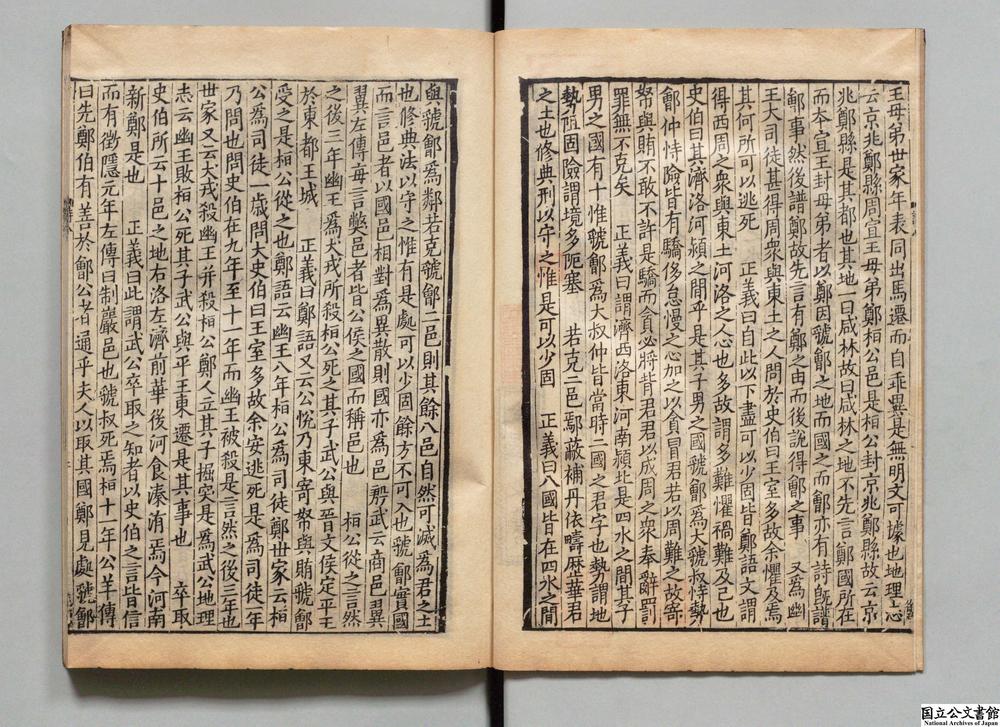 王母弟世家年表同出馬遷而自乖異是無明文可據也地理志
云京兆鄭縣周宣王母弟鄭桓公邑是桓公封京兆鄭縣故云京
兆鄭縣是其都也其地一曰咸林故曰咸林之地不先言鄭國所在
而本宣王封母弟者以鄭因虢鄶之地而國之而鄶亦有詩既譜
鄶事然後譜鄭故先言有鄭之由而後說得鄶之事 又為幽
王大司徒甚得周衆與東土之人問於史伯曰王室多故余懼及焉
其何所可以逃死 正義曰自此以下盡可以少固皆鄭語文謂
得西周之衆與東土河洛之人心也多故謂多難懼禍難及己也
史伯曰其濟洛河潁之間乎是其子男之國虢鄶為大虢叔恃勢
鄶仲恃險皆有驕侈怠慢之心加之以貪冒君若以周難之故寄
帑與賄不敢不許是驕而貪必將背君君以成周之衆奉辭罰
罪無不克矣 正義曰謂濟西洛東河南潁北是四水之間其子
男之國有十惟虢鄶為大叔仲皆當時二國之君字也勢謂地
勢阻固險謂境多阨塞 若克二邑鄢蔽補丹依疇歷華君
之土也修典刑以守之惟是可以少固 正義曰八國皆在四水之間
與虢鄶為鄰若克虢鄶二邑則其餘八邑自然可滅為君之土
也修典法以守之惟有是處可以少固餘方不可入也虢鄶實國
而言邑者以國邑相對為異散則國亦為邑殷武云商邑翼
翼左傳每言獘邑者皆公侯之國而稱邑也 桓公從之言然
之後三年幽王為犬戎所殺桓公死之其子武公與晉文侯定平王
於東都王城 正義曰鄭語又云公悅乃東寄帑與賄虢鄶
受之是桓公從之也鄭語云幽王八年桓公為司徒鄭世家云桓
公為司徒一歲問大史伯曰王室多故余安逃死是為司徒一年
乃問也問史伯在九年至十一年而幽王被殺是言然之後三年也
世家又云犬戎殺幽王并殺桓公鄭人立其子掘突是為武公地理
志云幽王敗桓公死其子武公與平王東遷是其事也 卒取
史伯所云十邑之地右洛左濟前華後河食溱洧焉今河南
新鄭是也 正義曰此謂武公卒取之知者以史伯之言皆信
而有徵隱元年左傳曰制巖邑也虢叔死焉桓十一年公羊傳
曰先鄭伯有善於鄶公者通乎夫人以取其國鄭見處虢鄶
国立公文書館
National Archives of Japan